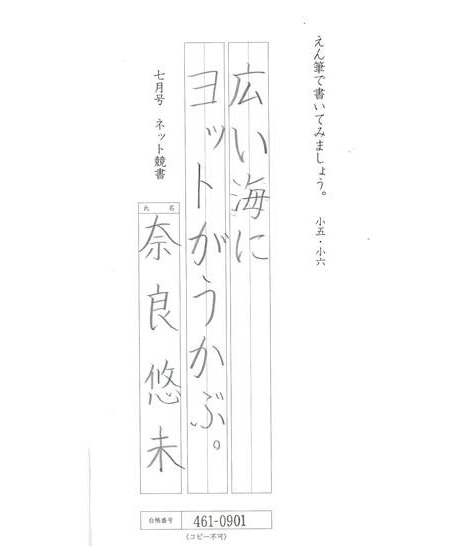 えん筆で書いてみましょう。 小五・小六
広い海に
ヨットがうかぶ。
七月号 ネット競書
氏名
奈良悠未
台帳番号 461-0901
(コピー不可)